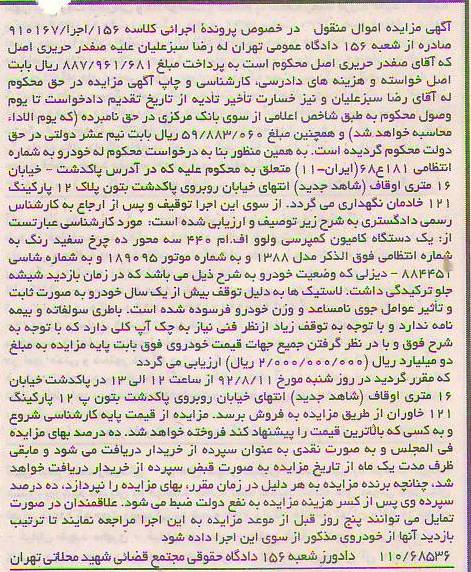 آگهی مزایده اموال منقول در خصوص پرونده اجرائی کلاسه ۱۵۶/اجرا/۹۱۰۱۶۷
صادره از شعبه ۱۵۶ دادگاه عمومی تهران له رضا سبزعلیان علیه صفدر حریری اصل
که آقای صفدر حریری اصل محکوم است به پرداخت مبلغ ۸۸۷/۹۶۱/۶۸۱ ریال بابت
اصل خواسته و هزینه های دادرسی، کارشناسی و چاپ آگهی مزایده در حق محکوم
له آقای رضا سبزعلیان و نیز خسارت تأخیر تأدیه از تاریخ تقدیم دادخواست تا یوم
وصول محکوم به طبق شاخص اعلامی از سوی بانک مرکزی در حق نامبرده (که یوم الاداء
محاسبه خواهد شد) و همچنین مبلغ ۵۹/۸۸۳/۰۶۰ ریال بابت نیم عشر دولتی در حق
دولت محکوم گردیده است. به همین منظور بنا به درخواست محکوم له خودرو به شماره
انتظامی ۱۸۱ع۶۸(ایران-۱۱) متعلق به محکوم علیه که در آدرس پاکدشت - خیابان
۱۶ متری اوقاف (شاهد جدید) انتهای خیابان روبروی پاکدشت بتون پلاک ۱۲ پارکینگ
۱۲۱ خادمان نگهداری می گردد. از سوی این اجرا توقیف و پس از ارجاع به کارشناس
رسمی دادگستری به شرح زیر توصیف و ارزیابی شده است: مورد کارشناسی عبارتست
از: یک دستگاه کامیون کمپرسی ولوو اف.ام ۴۴۰ سه محور ده چرخ سفید رنگ به
شماره انتظامی فوق الذکر مدل ۱۳۸۸ و به شماره موتور ۱۸۹۰۹۵ و به شماره شاسی
۸۸۴۴۵۲ - دیزلی که وضعیت خودرو به شرح ذیل می باشد که در زمان بازدید شیشه
جلو ترکیدگی داشت. لاستیک ها به دلیل توقف بیش از یک سال خودرو به صورت ثابت
و تأثیر عوامل جوی نامساعد و وزن خودرو فرسوده شده است. باطری سولفاته و بیمه
نامه ندارد و با توجه به توقف زیاد ازنظر فنی نیاز به چک آپ کلی دارد که با توجه به
شرح فوق و با در نظر گرفتن جمیع جهات قیمت خودروی فوق بابت پایه مزایده به مبلغ
دو میلیارد ریال (۲/۰۰۰/۰۰۰/۰۰۰ ریال) ارزیابی می گردد
که مقرر گردید در روز شنبه مورخ ۹۲/۸/۱۱ از ساعت ۱۲ الی ۱۳ در پاکدشت خیابان
۱۶ متری اوقاف (شاهد جدید) انتهای خیابان روبروی پاکدشت بتون پ ۱۲ پارکینگ
۱۲۱ خاوران از طریق مزایده به فروش برسد. مزایده از قیمت پایه کارشناسی شروع
و به کسی که بالاترین قیمت را پیشنهاد کند فروخته خواهد شد. ده درصد بهای مزایده
فی المجلس و به صورت نقدی به عنوان سپرده از خریدار دریافت می شود و مابقی
ظرف مدت یک ماه از تاریخ مزایده به صورت قبض سپرده از خریدار دریافت خواهد
شد، چنانچه برنده مزایده به هر دلیل در زمان مقرر، بهای مزایده را نپردازد، ده درصد
سپرده وی پس از کسر هزینه مزایده به نفع دولت ضبط می شود. علاقمندان در صورت
تمایل می توانند پنج روز قبل از موعد مزایده به این اجرا مراجعه نمایند تا ترتیب
بازدید آنها از خودروی مذکور از سوی این اجرا داده شود
۱۱۰/۶۸۵۳۶ دادورز شعبه ۱۵۶ دادگاه حقوقی مجتمع قضائی شهید محلاتی تهران